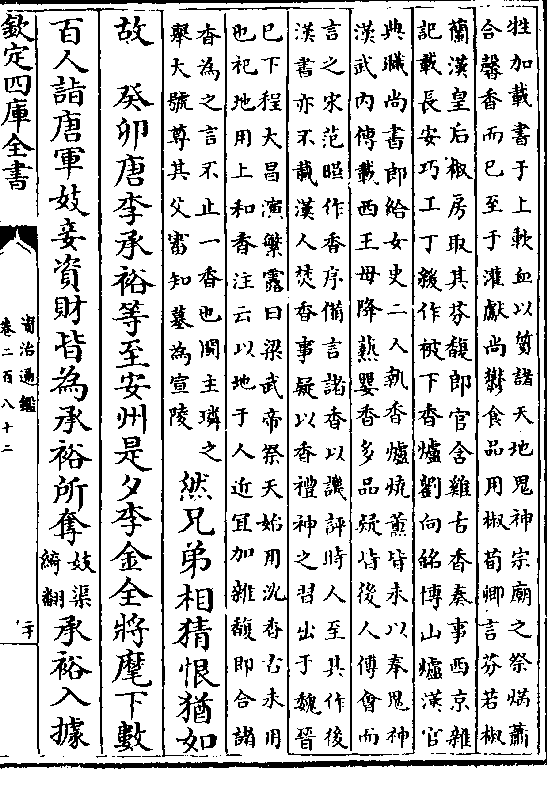 牲加載書于上歃血以質諸天地鬼神宗廟之祭焫蕭
合馨香而已至于灌獻尚鬱食品用椒荀卿言芬若椒
蘭漢皇后椒房取其芬馥郎官含雞舌香奏事西京雜
記載長安巧工丁緩作被下香爐劉向銘博山爐漢官
典職尚書郎給女史二人執香爐燒薰皆未以奉鬼神
漢武内傳載西王母降爇嬰香多品疑皆後人傅會而
言之宋范曄作香序備言諸香以譏評時人至其作後
漢書亦不載漢人焚香事疑以香禮神之習出于魏晉
已下程大昌演繁露曰梁武帝祭天始用沈香古未用
也祀地用上和香注云以地于人近宜加雜馥即合諸
香為之言不止一香也閩主璘之
舉大號尊其父審知墓為宣陵
然兄弟相猜恨猶如
故 癸卯唐李承裕等至安州是夕李金全將麾下數
百人詣唐軍妓妾資財皆為承裕所奪妓渠綺翻承裕入據
欽定四庫全書
資治通鑑
卷二百八十二
二十